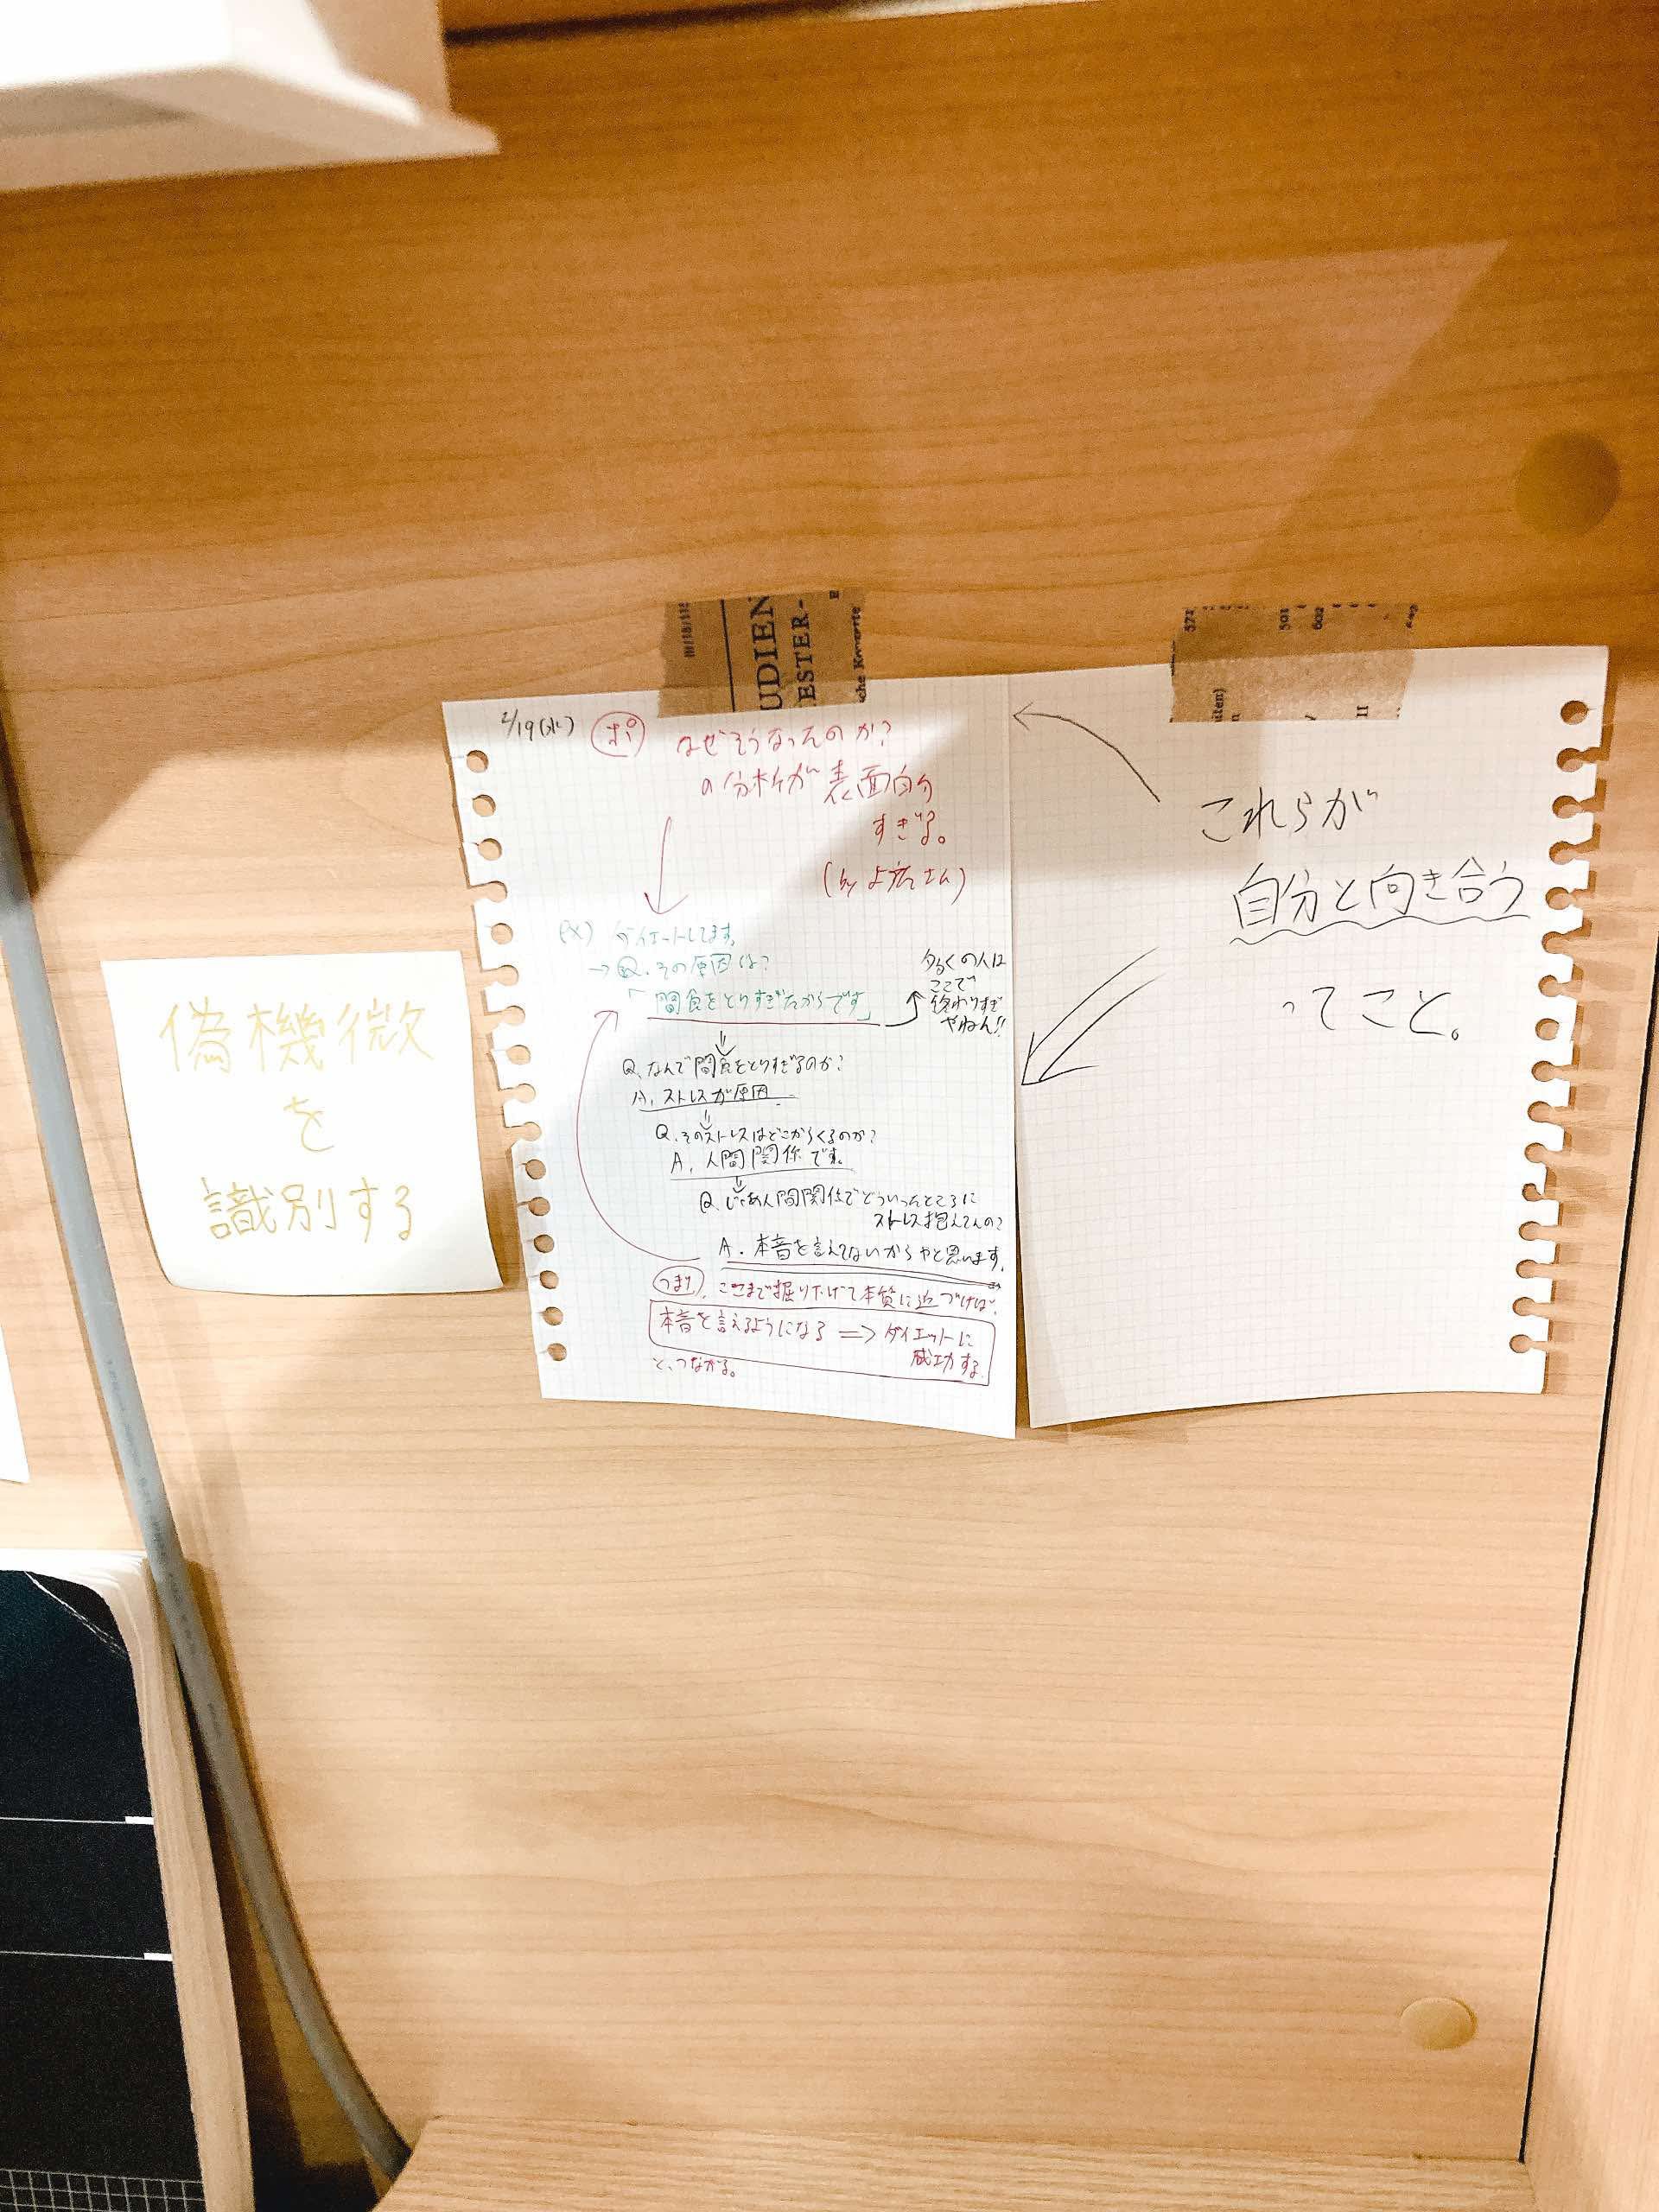 偽機微
を
識別する
2/19(水)
なぜそうなったのか?
の分析が表面的
すぎる。
ダイエットしてます。
→Q.その原因は?
「間食をとりすぎたからです」
多くの人は
ここで
終わりすぎ
やねん!!
Q.なんで間食をとりすぎるのか?
A.ストレスが原因
Q.そのストレスはどこからくるのか?
A.人間関係です。
Q.じゃあ人間関係でどういったところに
ストレス抱えてんの?
A.本音を言えてないからやと思います。
つまり、ここまで掘り下げて本質に近づけば、
本音を言えるようになる⇒ダイエットに
成功する
と、つながる。
これらが
自分と向き合う
ってこと。
UDIEN
ESTER-
572
501
602
II